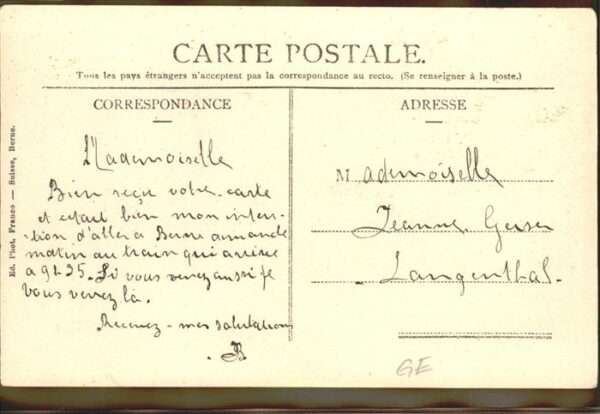 CARTE POSTALE.
Tous les pays étrangers n'acceptent pas la correspondance au recto. (Se renseigner à la poste.)
CORRESPONDANCE
Mademoiselle
Bien reçu votre carte
et était bien mon inten-
tion d'aller a Berne
matin au train qui arrive
a 9h 25. Si vous venez aussi je
vous verez là.
Recevez mes salutations
ADRESSE
Mademoiselle
Jeanne
Langenthal.
GE
Ed. Phot. Franco — Suisse, Berne.